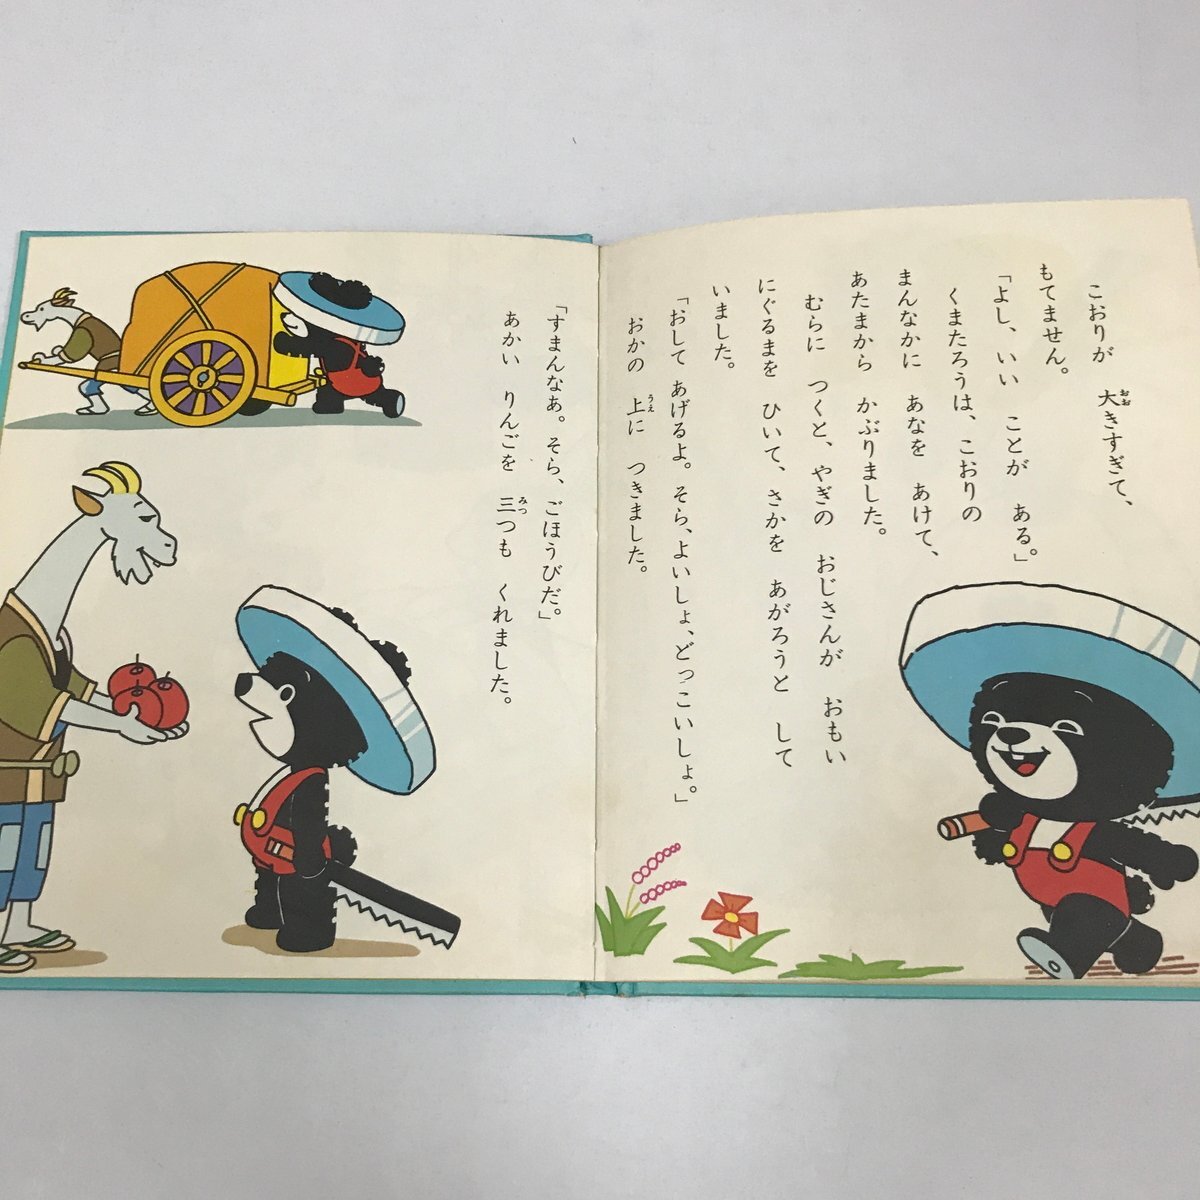 こおりが　大きすぎて、
もてません。
「よし、いい　ことが　ある。」
くまたろうは、こおりの
まんなかに　あなを　あけて、
あたまから　かぶりました。
むらに　つくと、やぎの　おじさんが　おもい
にぐるまを　ひいて、さかを　あがろうと　して
いました。
「おして　あげるよ。そら、よいしょ、どっこいしょ。」
おかの　上に　つきました。
「すまんなあ。そら、ごほうびだ。」
あかい　りんごを　三つも　くれました。